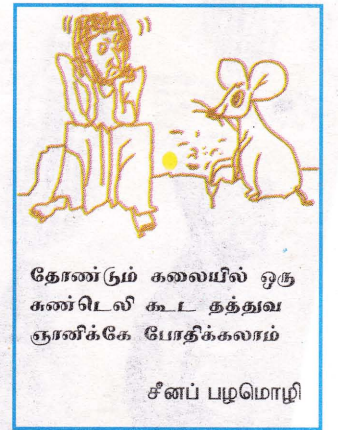 தோண்டும் கலையில் ஒரு
சுண்டெலி கூட தத்துவ
ஞானிக்கே போதிக்கலாம்
சீனப் பழமொழி